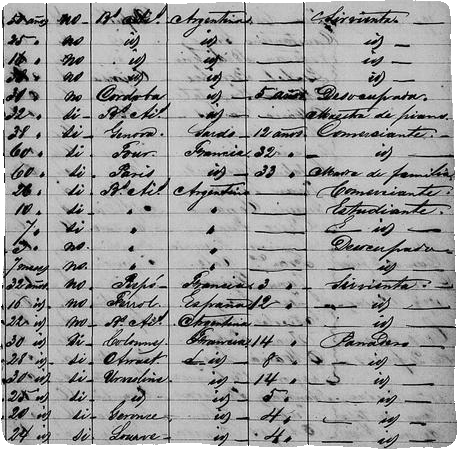 50 años no Bs. As. Argentina — Sirvienta
25 " no id id — id —
18 " no id id — id —
no id id — id —
30 " no Cordoba id — 5 años Desocupada.
32 " si Bs. As. id — Maestra de piano.
38 " si Genova Sardo 12 años Comerciante. —
60 " si Tour Francia 32 " — id —
60 " si Paris id — 33 " Madre de familia
28 " si Bs. As. Argentina — Comerciante.
10 " si " " — Estudiante.
7 " si " " — id —
" no. " " — Desocupado —
7 meses no. " " — id —
32 años. no Francia 3 " Sirvienta. —
16 id no Ferrol España 12 " — id —
22 id no Bs. As. Argentina — id —
30 id si Colonne Francia 14 " Panadero
28 id si — id — 8 " — id —
30 id si id — 14 " — id —
25 id si id id — 5 " — id —
20 id si id — 4 " — id —
24 id si Louvre id — 4 " — id —